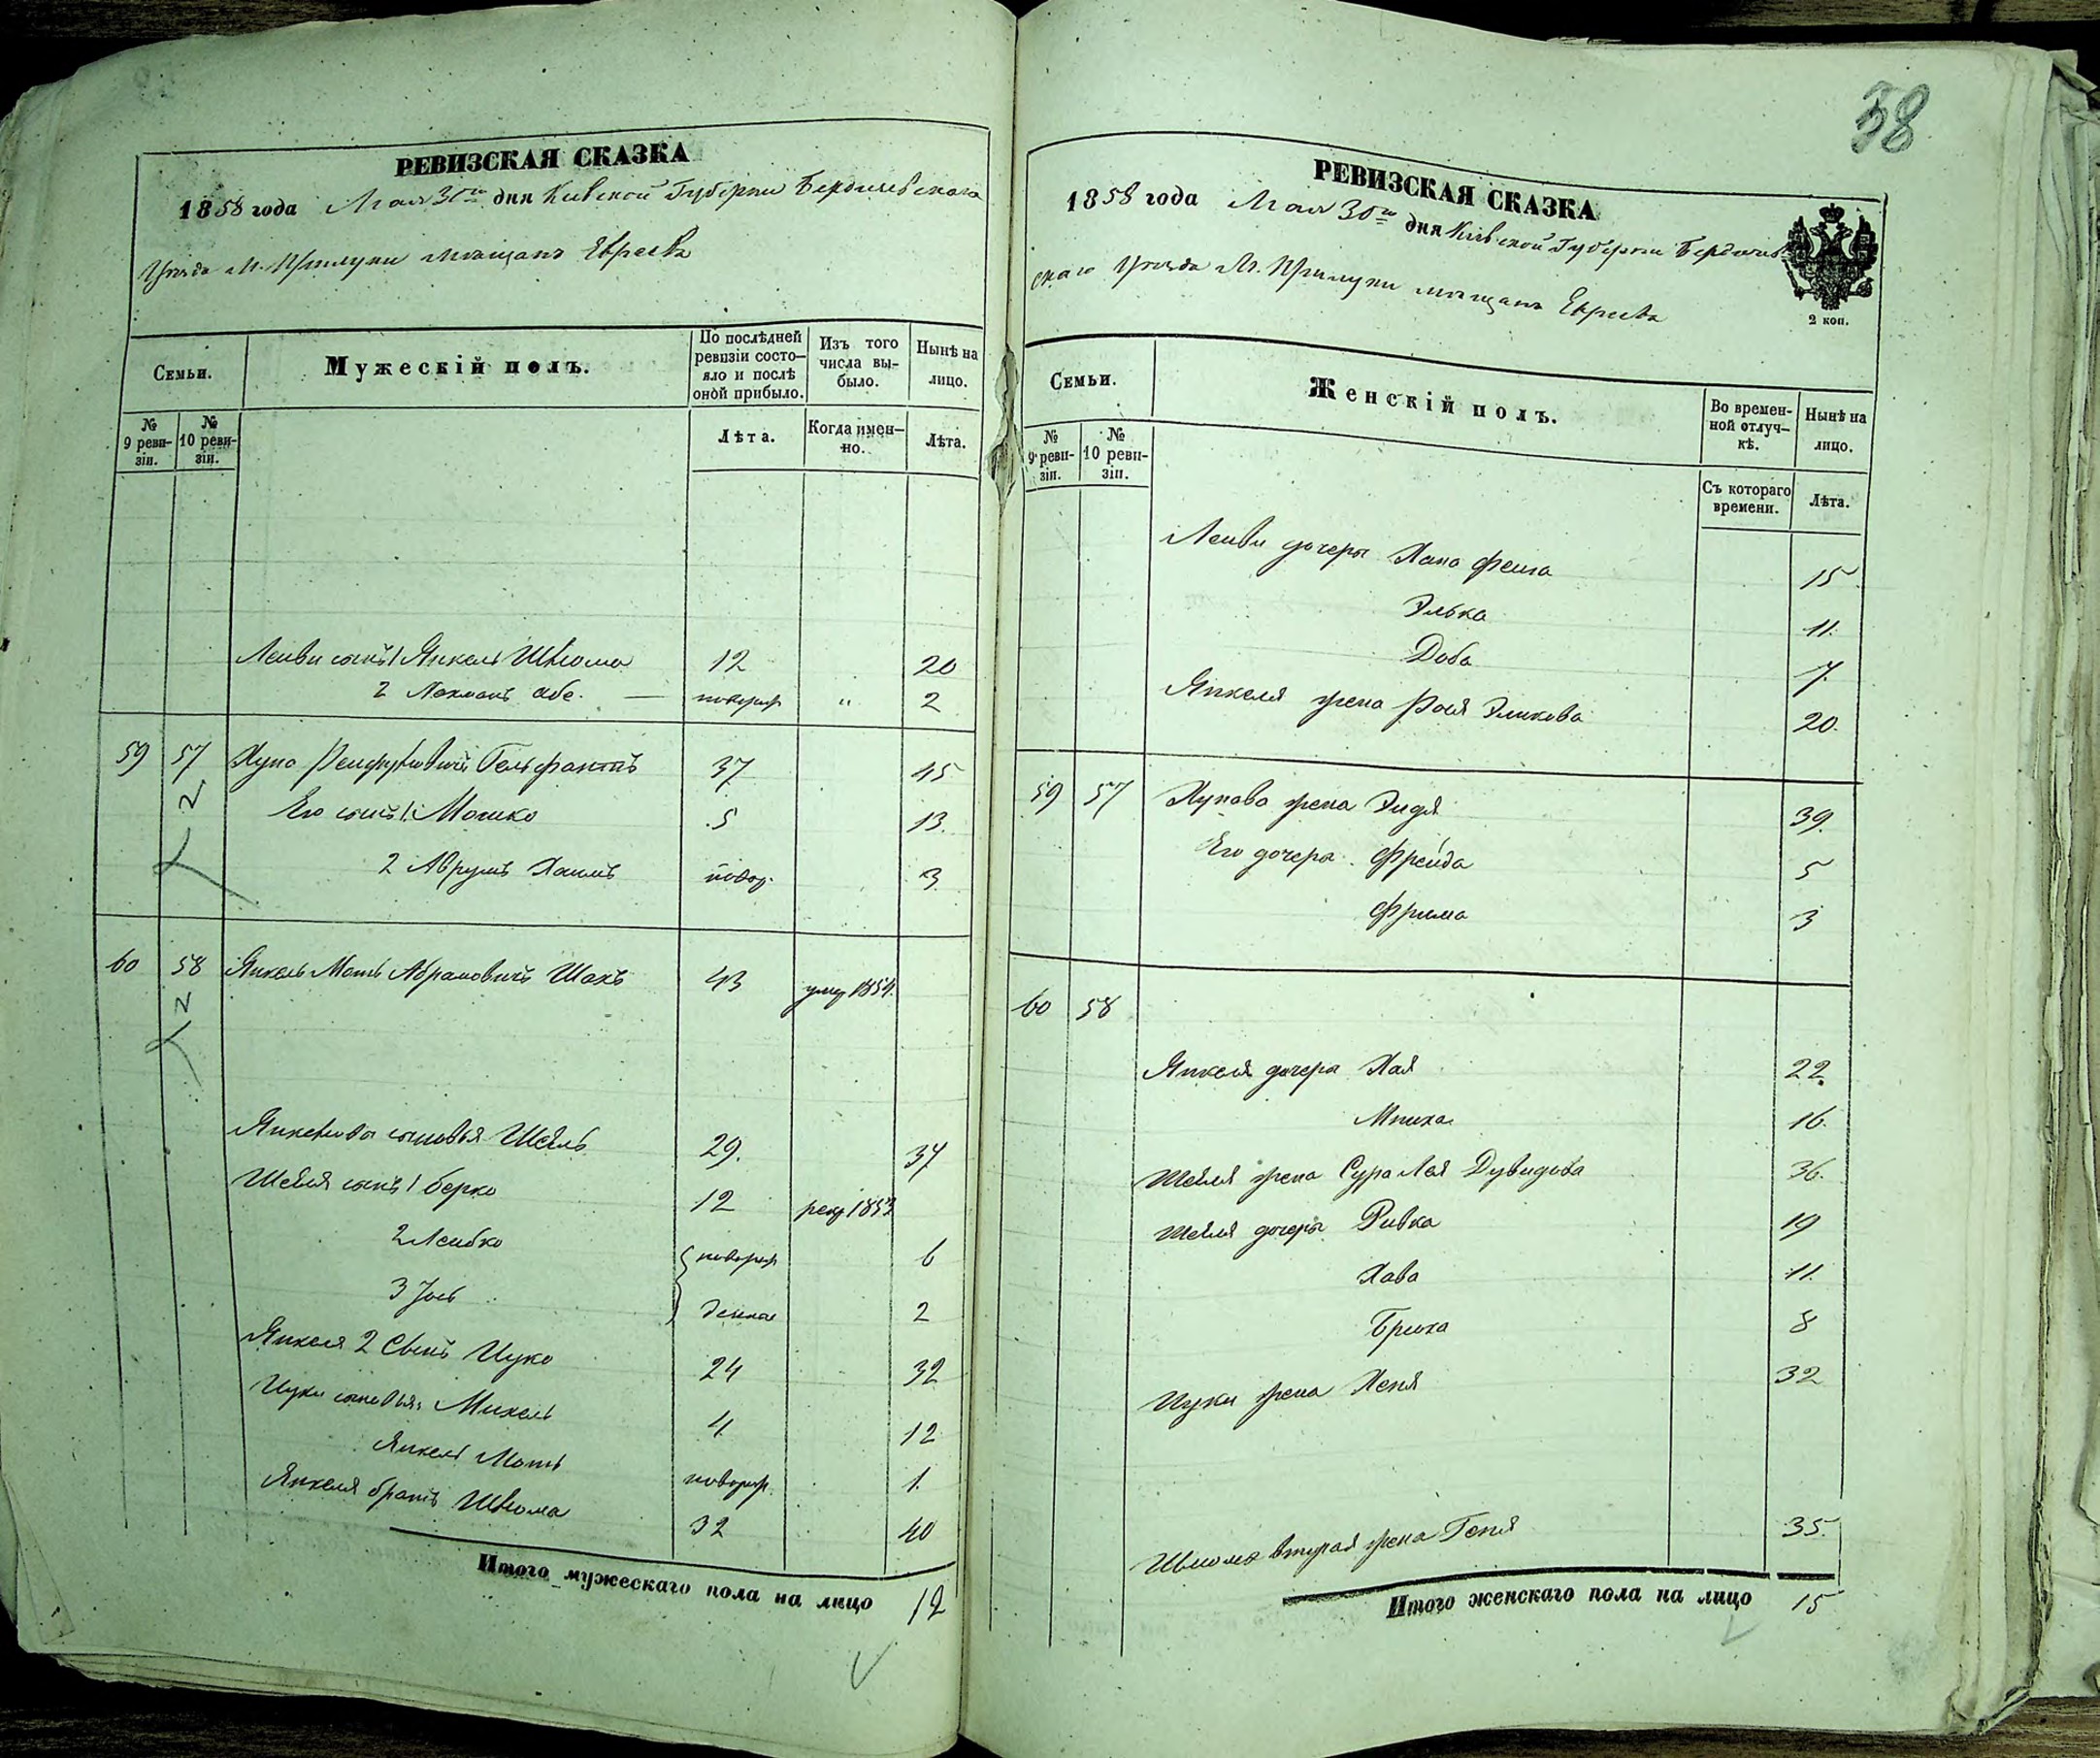 РЕВИЗСКАЯ СКАЗКА
1858 года Мая 30го дня Кіевской Губерніи Бердичевскаго
Уѣзда М. Прилуки мѣщанъ Евреевъ
Семьи.
Мужескій полъ.
По послѣдней ревизіи состо-
яло и послѣ оной прибыло.
Изъ того числа вы-
было.
Нынѣ на лицо.
№ 9 реви-
зіи.
№ 10 реви-
зіи.
Лѣта.
Когда имен-
но.
Лѣта.
Лейви сынъ 1 Янкель Шлиома 12 20
2 Нахманъ Абе. — новорож " 2
59 57 Хуна Гельфантъ 37 45
Его сынъ 1. Мошко 5 13.
2 Аврумъ Хаимъ новор. 3
60 58 Янкель Моть Абрамовичъ Шахъ 43 умер 1854.
Янкелиова сыновья Шейль 29. 37
Шейля сынъ 1 Берко 12 рекр 1853
2 Лейбко новорож 6
3 Іось денные 2
Янкеля 2 Сынъ Ицко 24 32
Ицки сыновья Михель 4 12
Янкель Моть новорож. 1.
Янкеля братъ Шлиома 32 40
Итого мужескаго пола на лицо 12
58
РЕВИЗСКАЯ СКАЗКА
1858 года Мая 30го дня Кіевской Губерніи Бердичев
скаго Уѣзда М. Прилуки мѣщанъ Евреевъ
2 коп.
Семьи.
Женскій полъ.
Во времен-
ной отлуч-
кѣ.
Нынѣ на лицо.
№ 9 реви-
зіи.
№ 10 реви-
зіи.
Съ котораго времени.
Лѣта.
Лейви дочери Хана Фейга 15
Элька 11.
Доба 7.
Янкеля жена Рося Эликова 20.
59 57 Хунова жена Эидя 39.
Его дочери Фрейда 5
Фрима 3
60 58
Янкеля дочери Хая 22.
Мниха 16.
Шейля жена Сура Лея Дувидова 36.
Шейля дочери Ривка 19
Хава 11.
Бриха 8
Ицки жена Хеня 32
Шлиома вторая жена Геня 35.
Итого женскаго пола на лицо 15